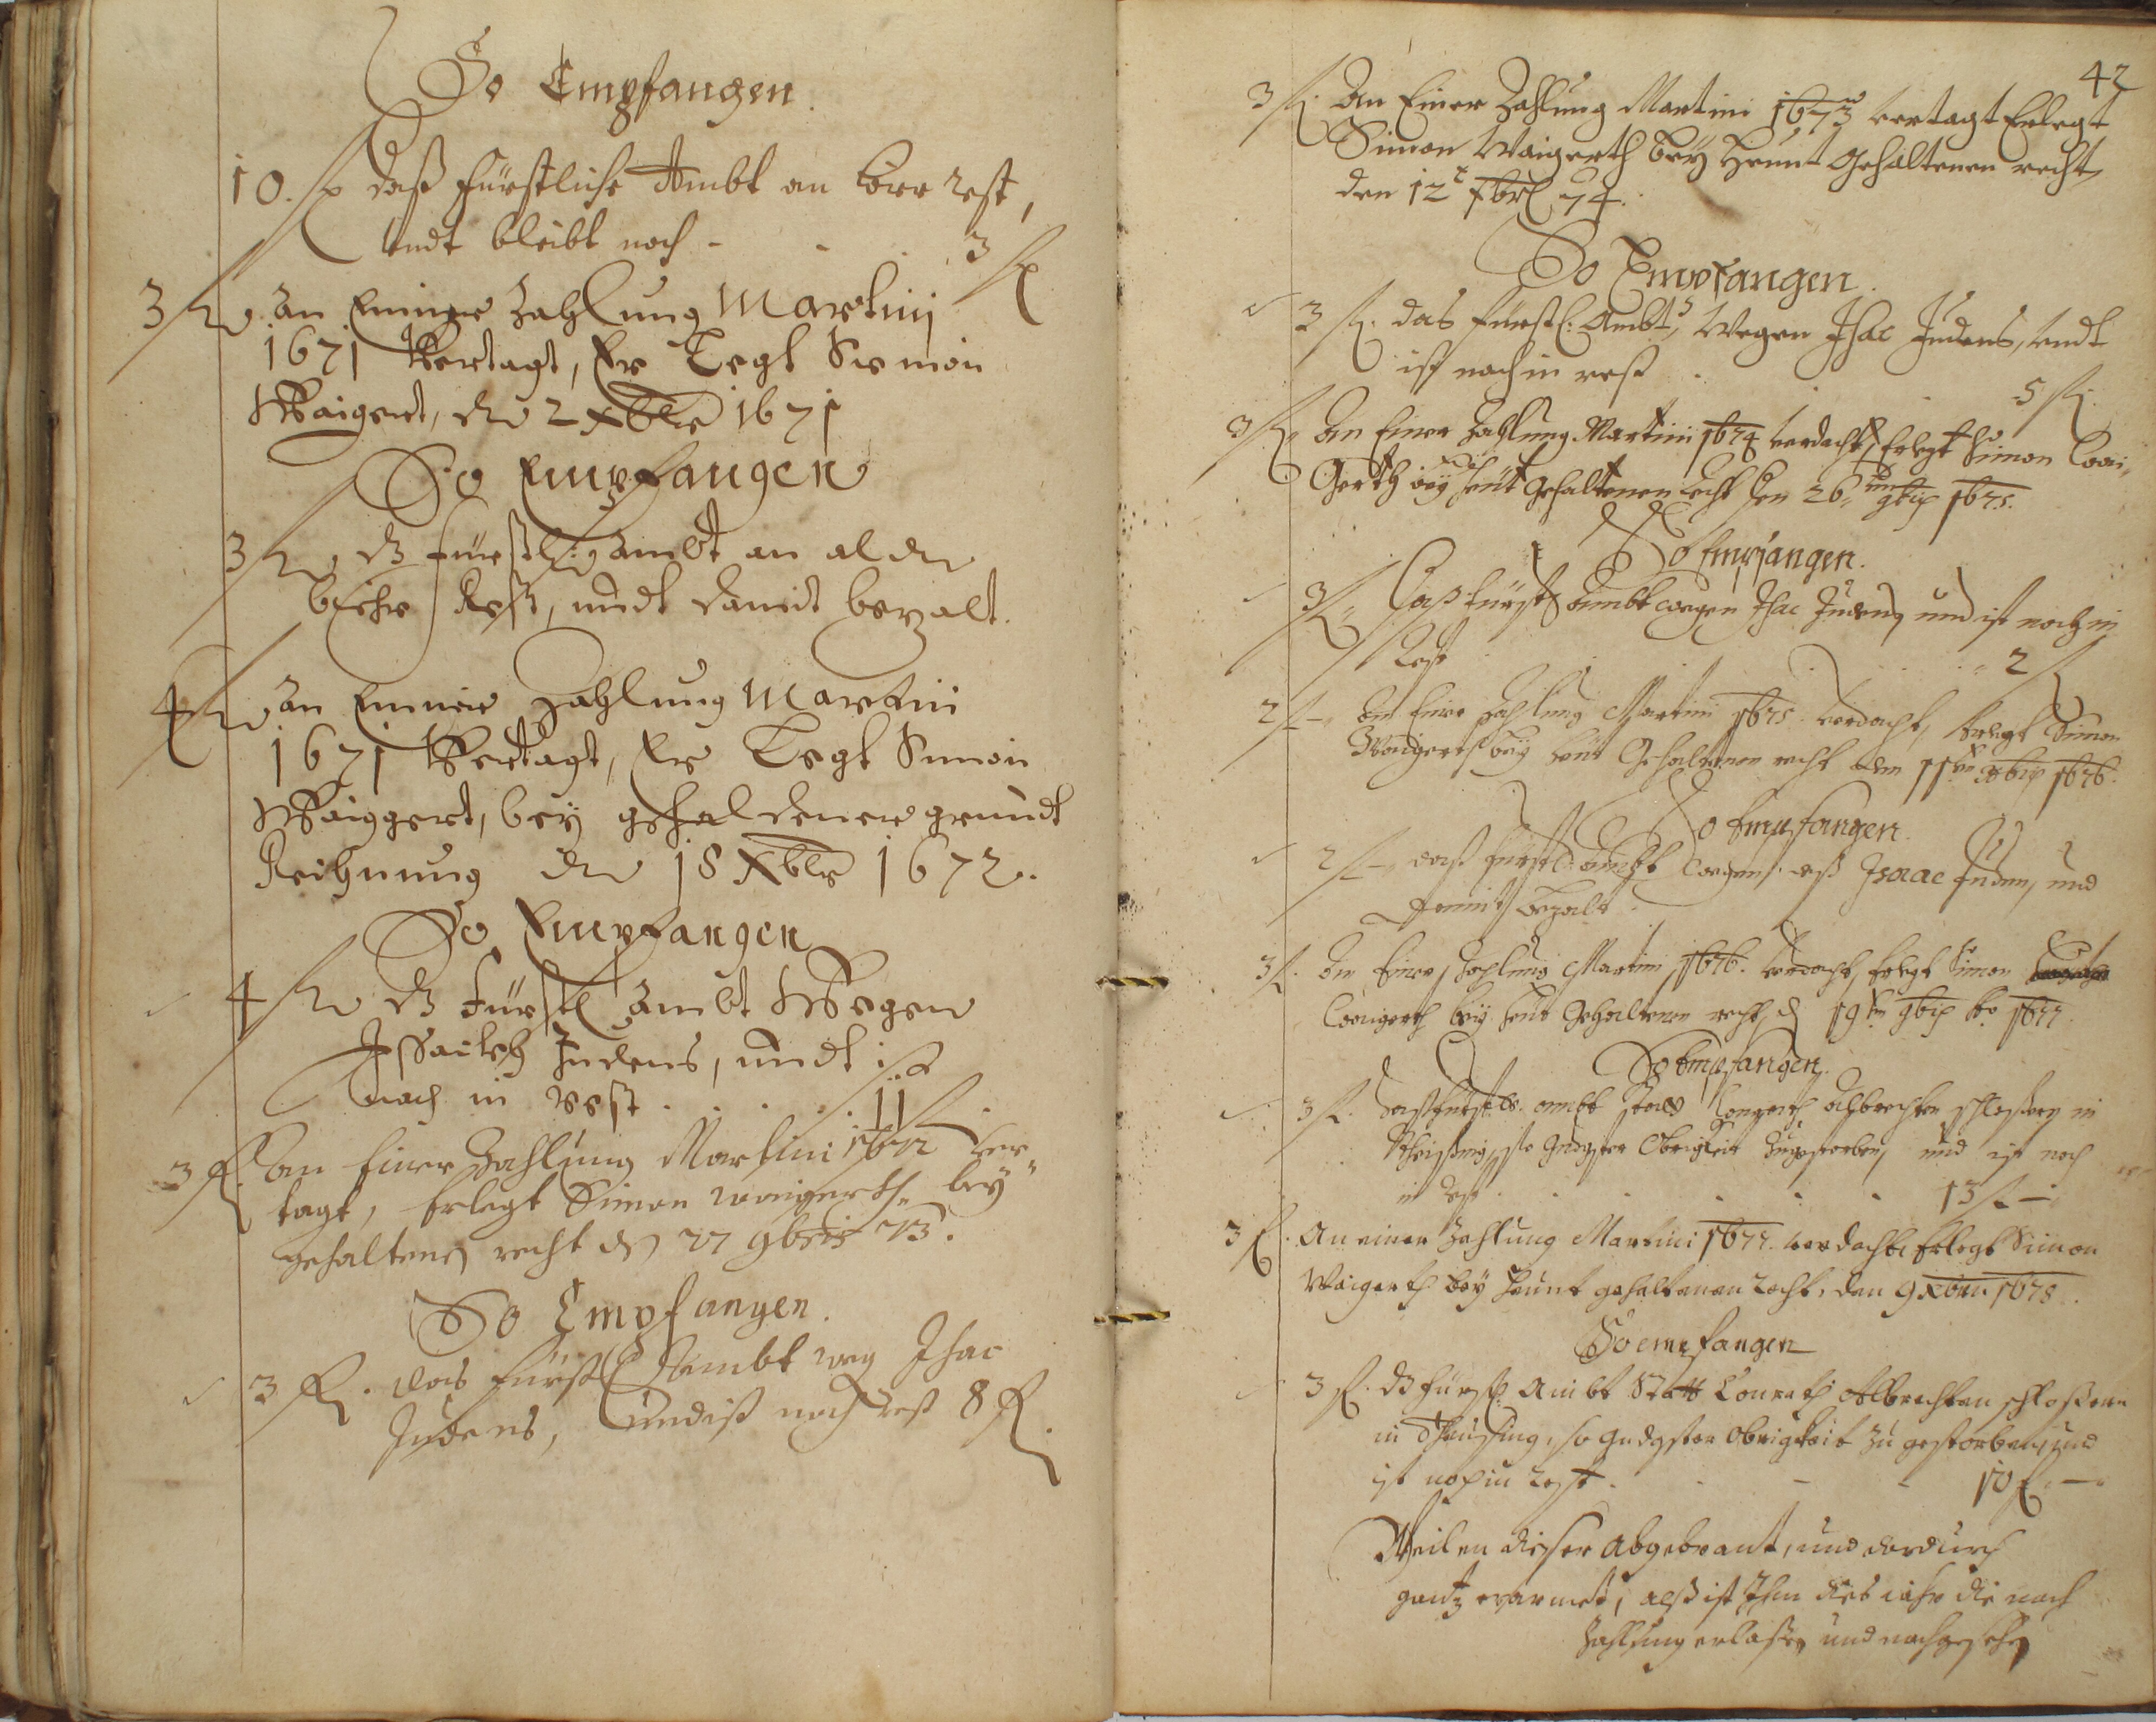 So Empfangen.
10. fl daß Fürstliche Ambt an Körr rest,
undt bleibt noch - - 3 fl
3 fl An Einiger Zahlung Martinj
1671 Vertagt, Er Legt Siemon
Waigert, den 2 Xbris 1671
So Empfangen
3 fl dz Fürstl: Ambt an alden
Rest, undt damit bezalt.
4 fl An Einner Zahlung Martini
1671 Vertagt, Er Legt Simon
Waiggert, bey gehaldener grundt
Rechnung den 18 Xbris 1672.
So Empfangen
4 fl dz Fürstl Ambt Wegen
Judens, undt ist
noch in rest . . . . 11 fl.
3 fl. An Einer Zahlung Martini 1672 ver=
tagt, Erlegt Simon waigerth bey
gehaltenen recht den 27 9bris 73.
So Empfangen.
3 fl. das Fürstl Ambt weg Isac
Judens, Undist noch rest 8 fl.
42
3 fl. An Einer Zahlung Martini 1673 vertagt Erlegt
Simon Waigerth bey Heunt Gehaltenen recht,
den 12 74.
So Empfangen.
3 fl. das Fürstl: Ambt, Wegen Isac Judens, undt
ist noch in rest . . . 5 fl.
3 fl. An Einer Zahlung Martini 1674 verdacht, Erlegt Simon Wai=
Gerth bey heut Gehaltenen recht den 26 9bris 1675.
So Empfangen.
3 fl. Daß Fürstl Ambt wegen Isac Judens, und ist noch in
Rest . . . 2 fl
2 fl - An Einer Zahlung Martini 1675. verdacht, Erlegt Simon
Waigerth bey heut Gehaltenen recht den 11 1676.
So Empfangen.
2 fl - daß Fürstl: Ambt wegen deß Isaac Juden, und
damit bezalt.
3 fl. An Einer Zahlung Martini 1676. verdacht, Erlegt Simon
Waigerth bey heut Gehaltenen recht, den 19 9bris Ao 1677.
So Empfangen.
3 fl. daß Fürstl. Ambt Statt Conrath Albrechten schlossers in
Theissing, so Gndgster Obrigkeit Zugestorben, und ist noch
in Rest . . . . . 13 fl -
3 fl. An einer Zahlung Martini 1677. verdacht Erlegt Simon
Waigerth bey heunt gehaltenen recht, den 9 Xbris 1678.
So empfangen
3 fl. dz Fürstl: Ambt Statt Conrath Albrechten schlossern
in Theussing, so gndgster Obrigkeit zu gestorben, und
ist noch in rest . - - 10 fl. -
Weilen dieser Abgebrant, und dardurch
gantz erarmet, alß ist Ihm dies iahr die nach
Zahlung erlassen und nachgesehen